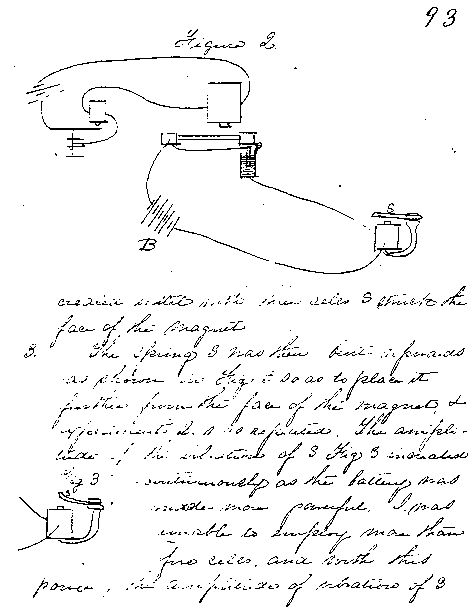 93
Figure 2
S
B
creased until with three cells S struck the
face of the magnet
3. The spring S was then bent upwards
as shown in Fig 3 so as to place it
further from the face of the magnet, &
experiment 2 was repeated. The ampli-
tude of the vibrations of S Fig 3 increased
Fig 3 continuously as the battery was
made more powerful. I was
unable to employ more than
five cells, and with this
power, the amplitude of vibration of S